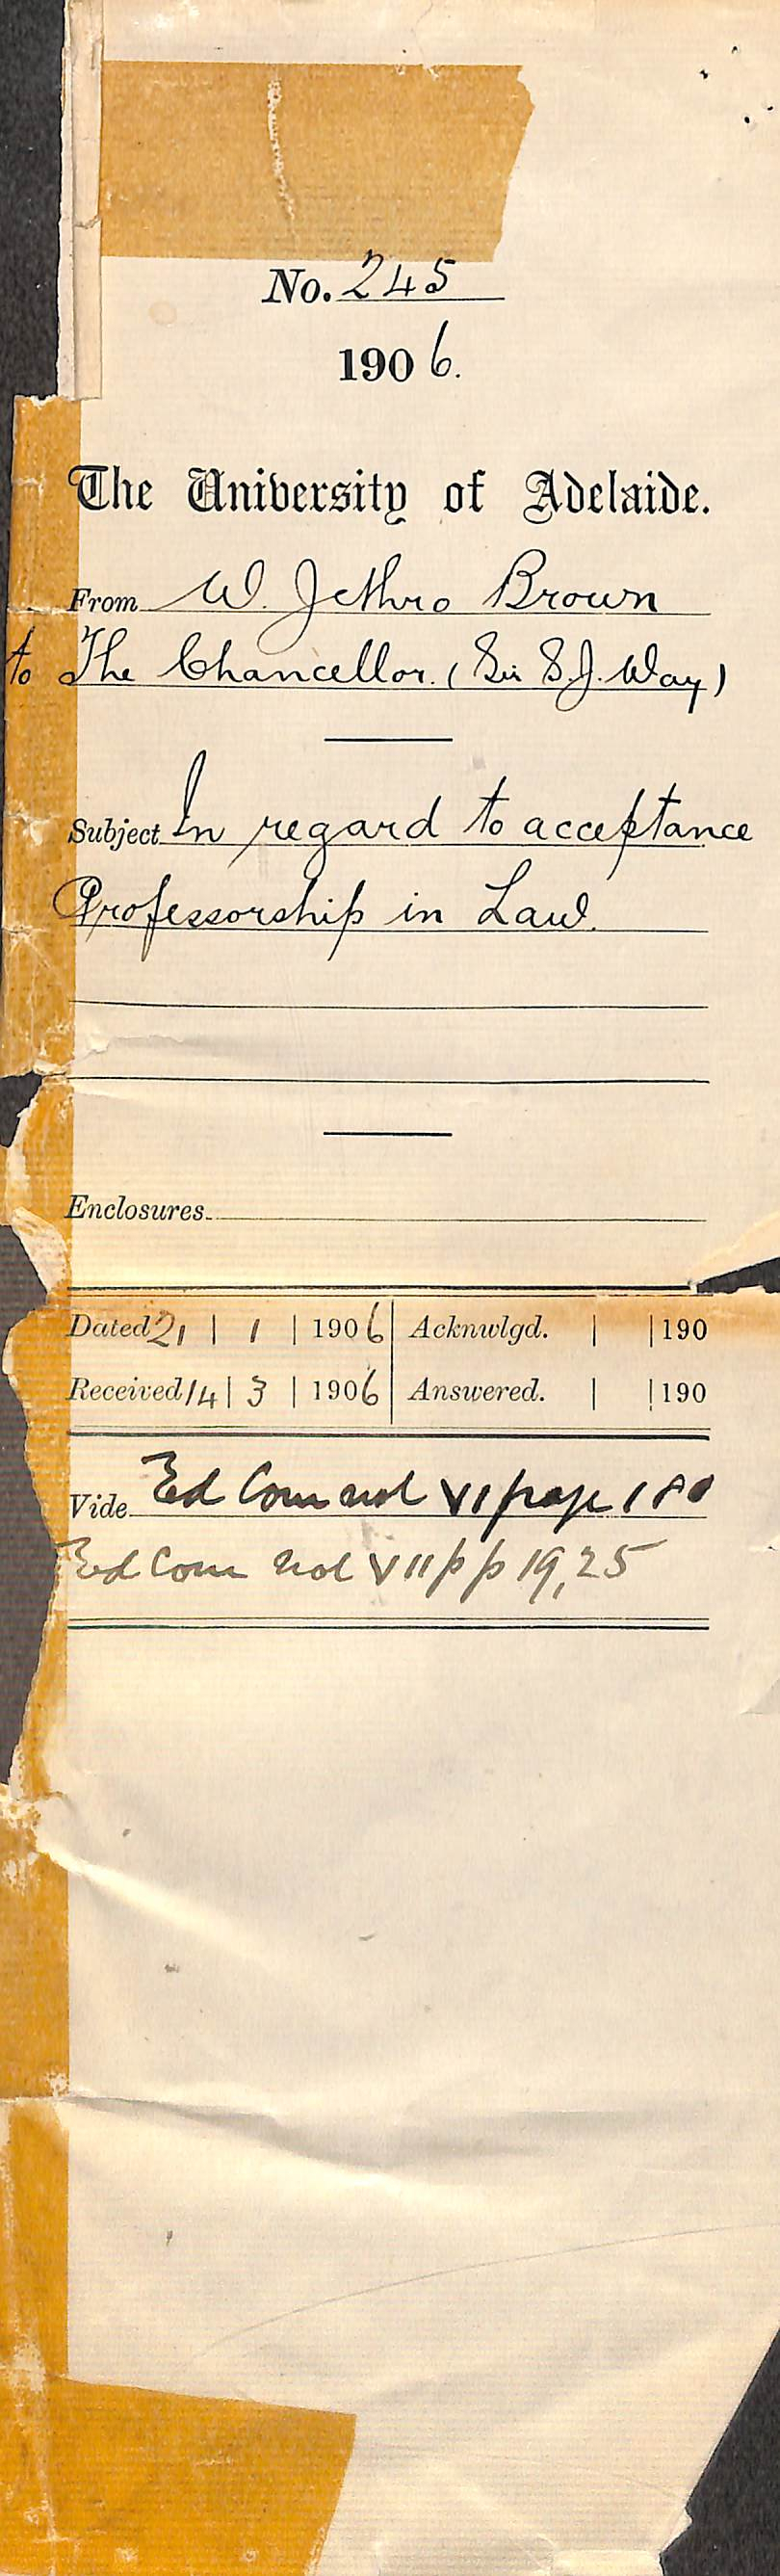 No. 245
1906.
The University of Adelaide.
From W. Jethro Brown
to The Chancellor. (Sir S. J. Way)
Subject In regard to acceptance
Professorship in Law.
Enclosures
Dated 21 | 1 | 1906 | Acknwlgd. | | 190
Received 14 | 3 | 1906 | Answered. | | 190
Vide Ed Com vol VI page 180
Ed Com vol VII pp 19, 25